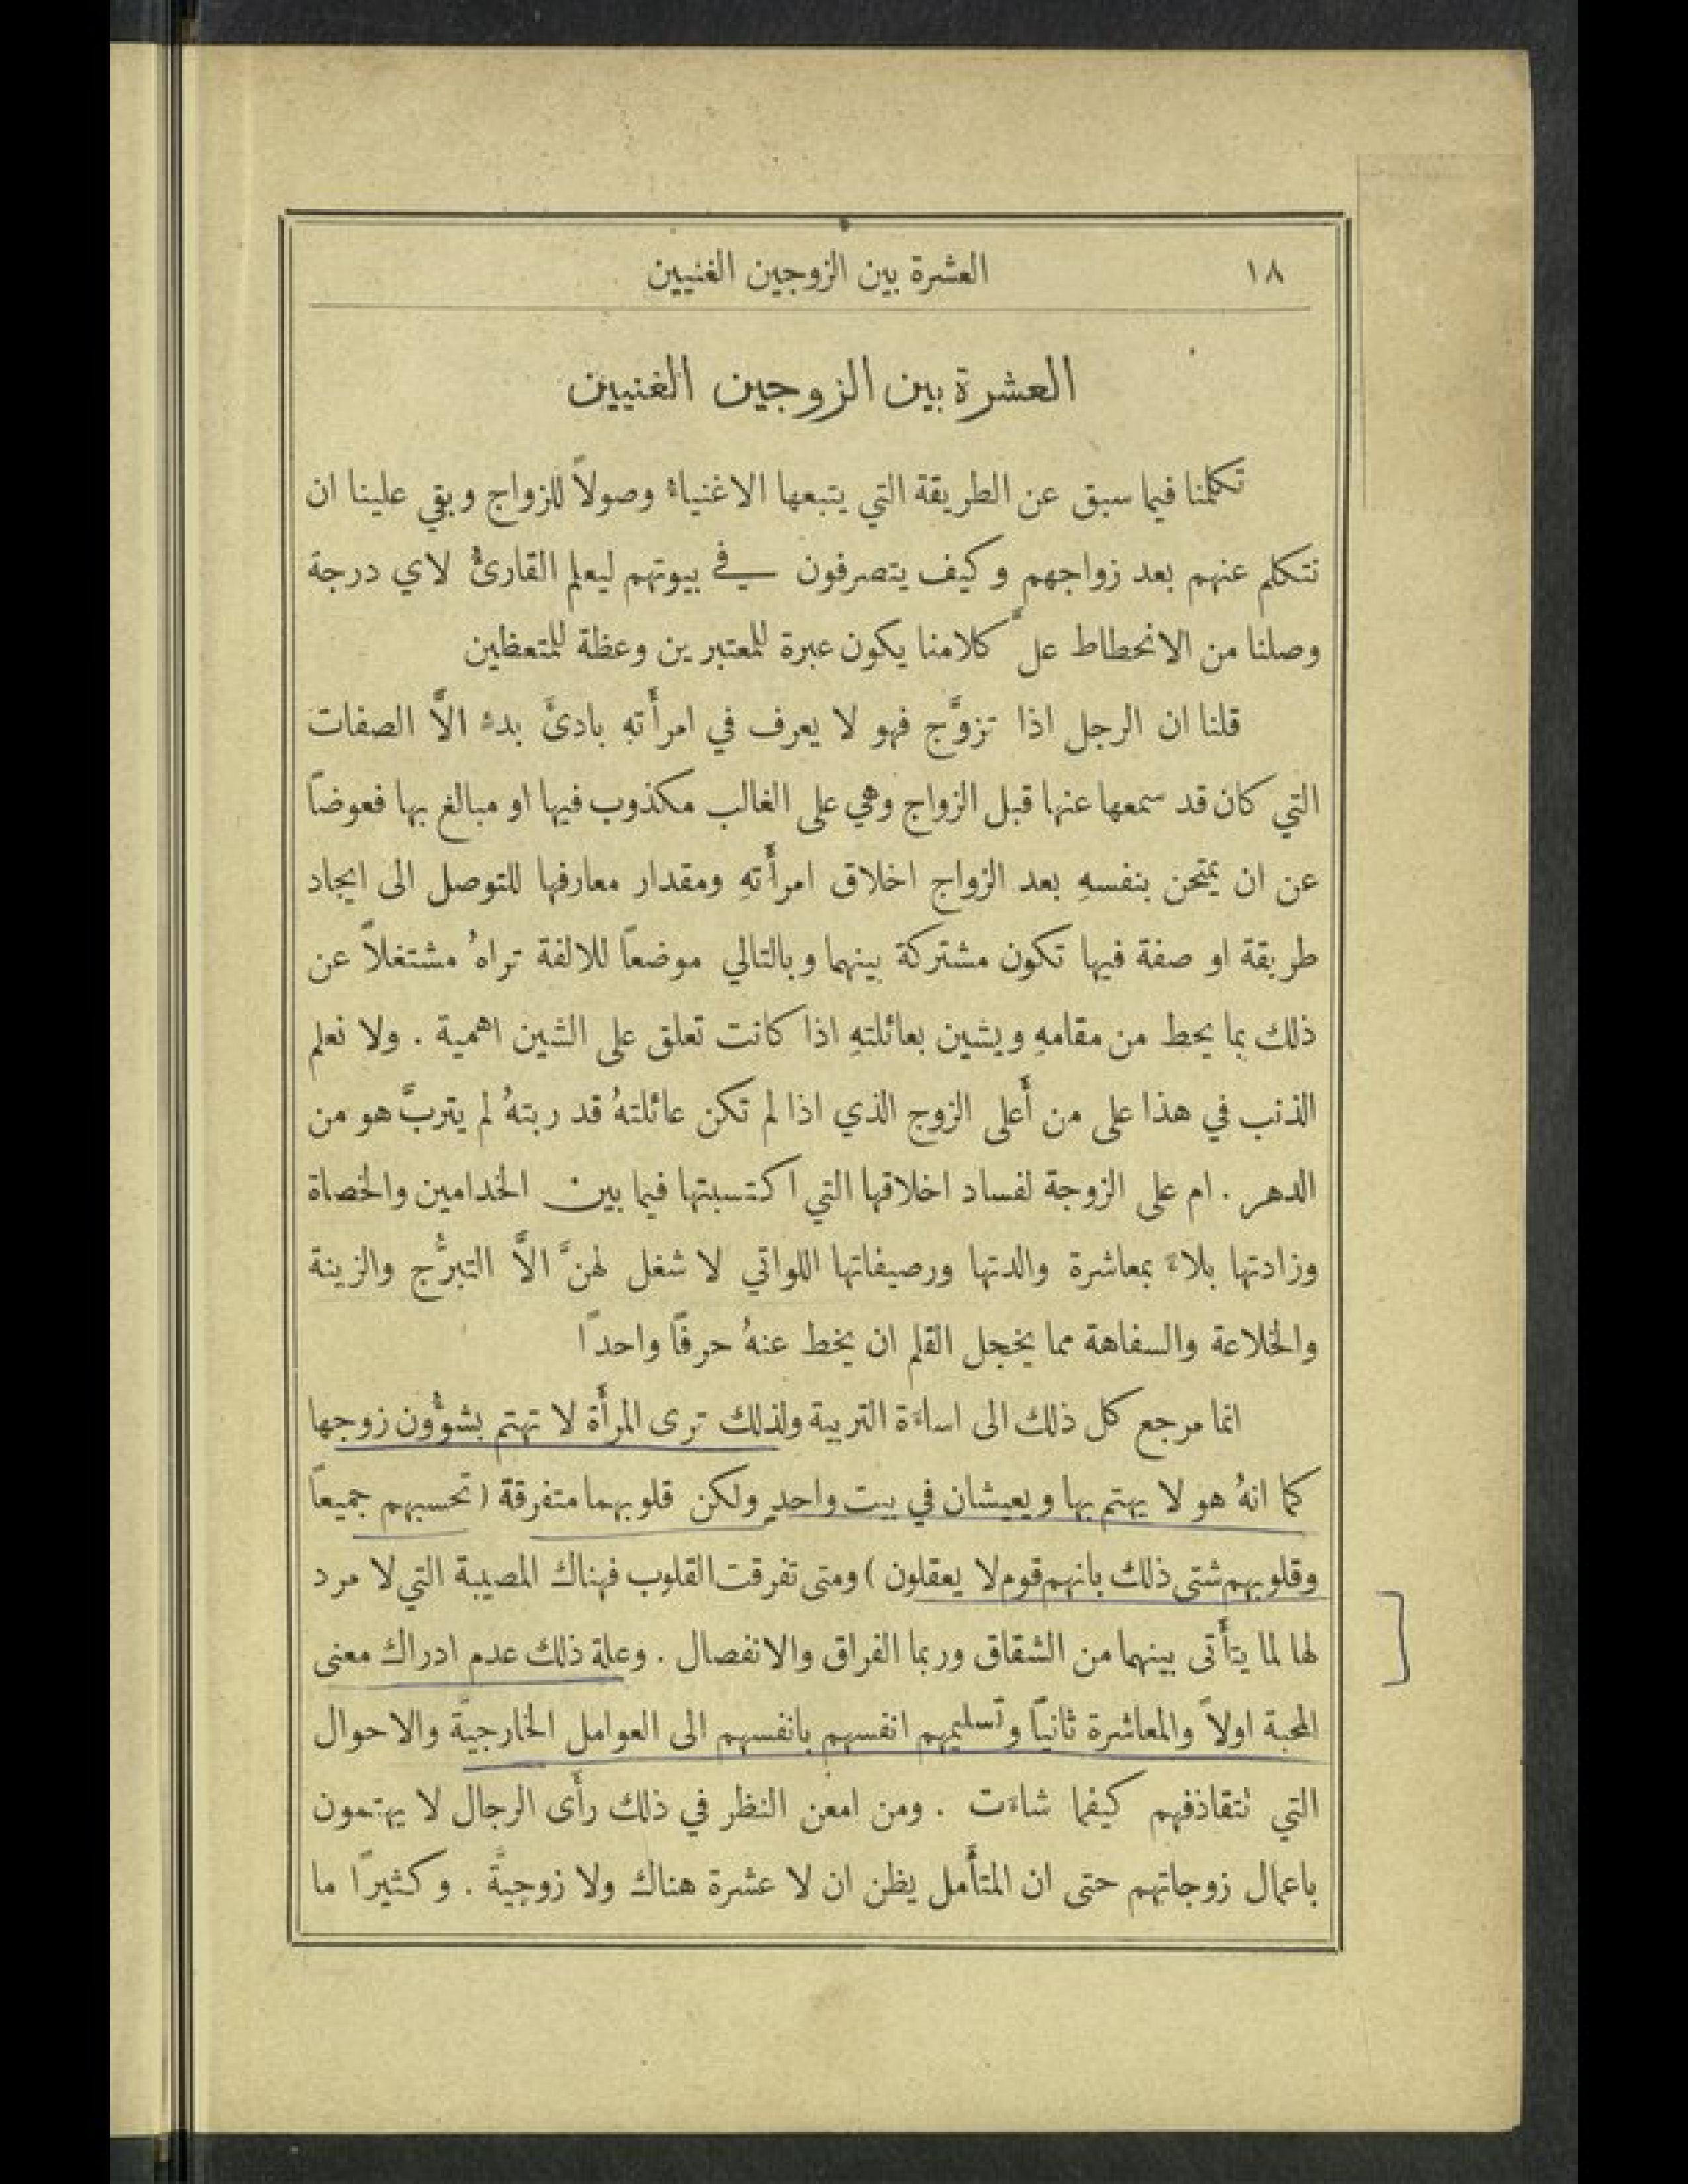 ١٨ العشرة بين الزوجين الغنيين
العشرة بين الزوجين الغنيين
تكلمنا فيما سبق عن الطريقة التي يتبعها الاغنياء وصولاً للزواج وبقي علينا ان
نتكلم عنهم بعد زواجهم وكيف يتصرفون في بيوتهم ليعلم القارئ لاي درجة
وصلنا من الانحطاط علَّ كلامنا يكون عبرة للمعتبرين وعظة للمتعظين
قلنا ان الرجل اذا تزوَّج فهو لا يعرف في امرأَته بادئَ بدء الاَّ الصفات
التي كان قد سمعها عنها قبل الزواج وهي على الغالب مكذوب فيها او مبالغ بها فعوضاً
عن ان يمتحن بنفسهِ بعد الزواج اخلاق امرأَتهِ ومقدار معارفها للتوصل الى ايجاد
طريقة او صفة فيها تكون مشتركة بينهما وبالتالي موضعاً للالفة تراهُ مشتغلاً عن
ذلك بما يحط من مقامهِ ويشين بعائلتهِ اذا كانت تعلق على الشين اهمية . ولا نعلم
الذنب في هذا على من أَعلى الزوج الذي اذا لم تكن عائلتهُ قد ربتهُ لم يتربَّ هو من
الدهر . ام على الزوجة لفساد اخلاقها التي اكتسبتها فيما بين الخدامين والخصاة
وزادتها بلاءً بمعاشرة والدتها ورصيفاتها اللواتي لا شغل لهنَّ الاَّ التبرُّج والزينة
والخلاعة والسفاهة مما يخجل القلم ان يخط عنهُ حرفاً واحداً
انما مرجع كل ذلك الى اساءَة التربية ولذلك ترى المرأَة لا تهتم بشوُّون زوجها
كما انهُ هو لا يهتم بها ويعيشان في بيت واحدٍ ولكن قلوبهما متفرقة (تحسبهم جميعاً
وقلوبهم شتى ذلك بانهم قوم لا يعقلون) ومتى تفرقت القلوب فهناك المصيبة التي لا مرد
لها لما يتأَتى بينهما من الشقاق وربما الفراق والانفصال . وعلة ذلك عدم ادراك معنى
المحبة اولاً والمعاشرة ثانياً وتسليمهم انفسهم بانفسهم الى العوامل الخارجيَّة والاحوال
التي تتقاذفهم كيفما شاءَت . ومن امعن النظر في ذلك رأَى الرجال لا يهتمون
باعمال زوجاتهم حتى ان المتأَمل يظن ان لا عشرة هناك ولا زوجيَّة . وكثيراً ما